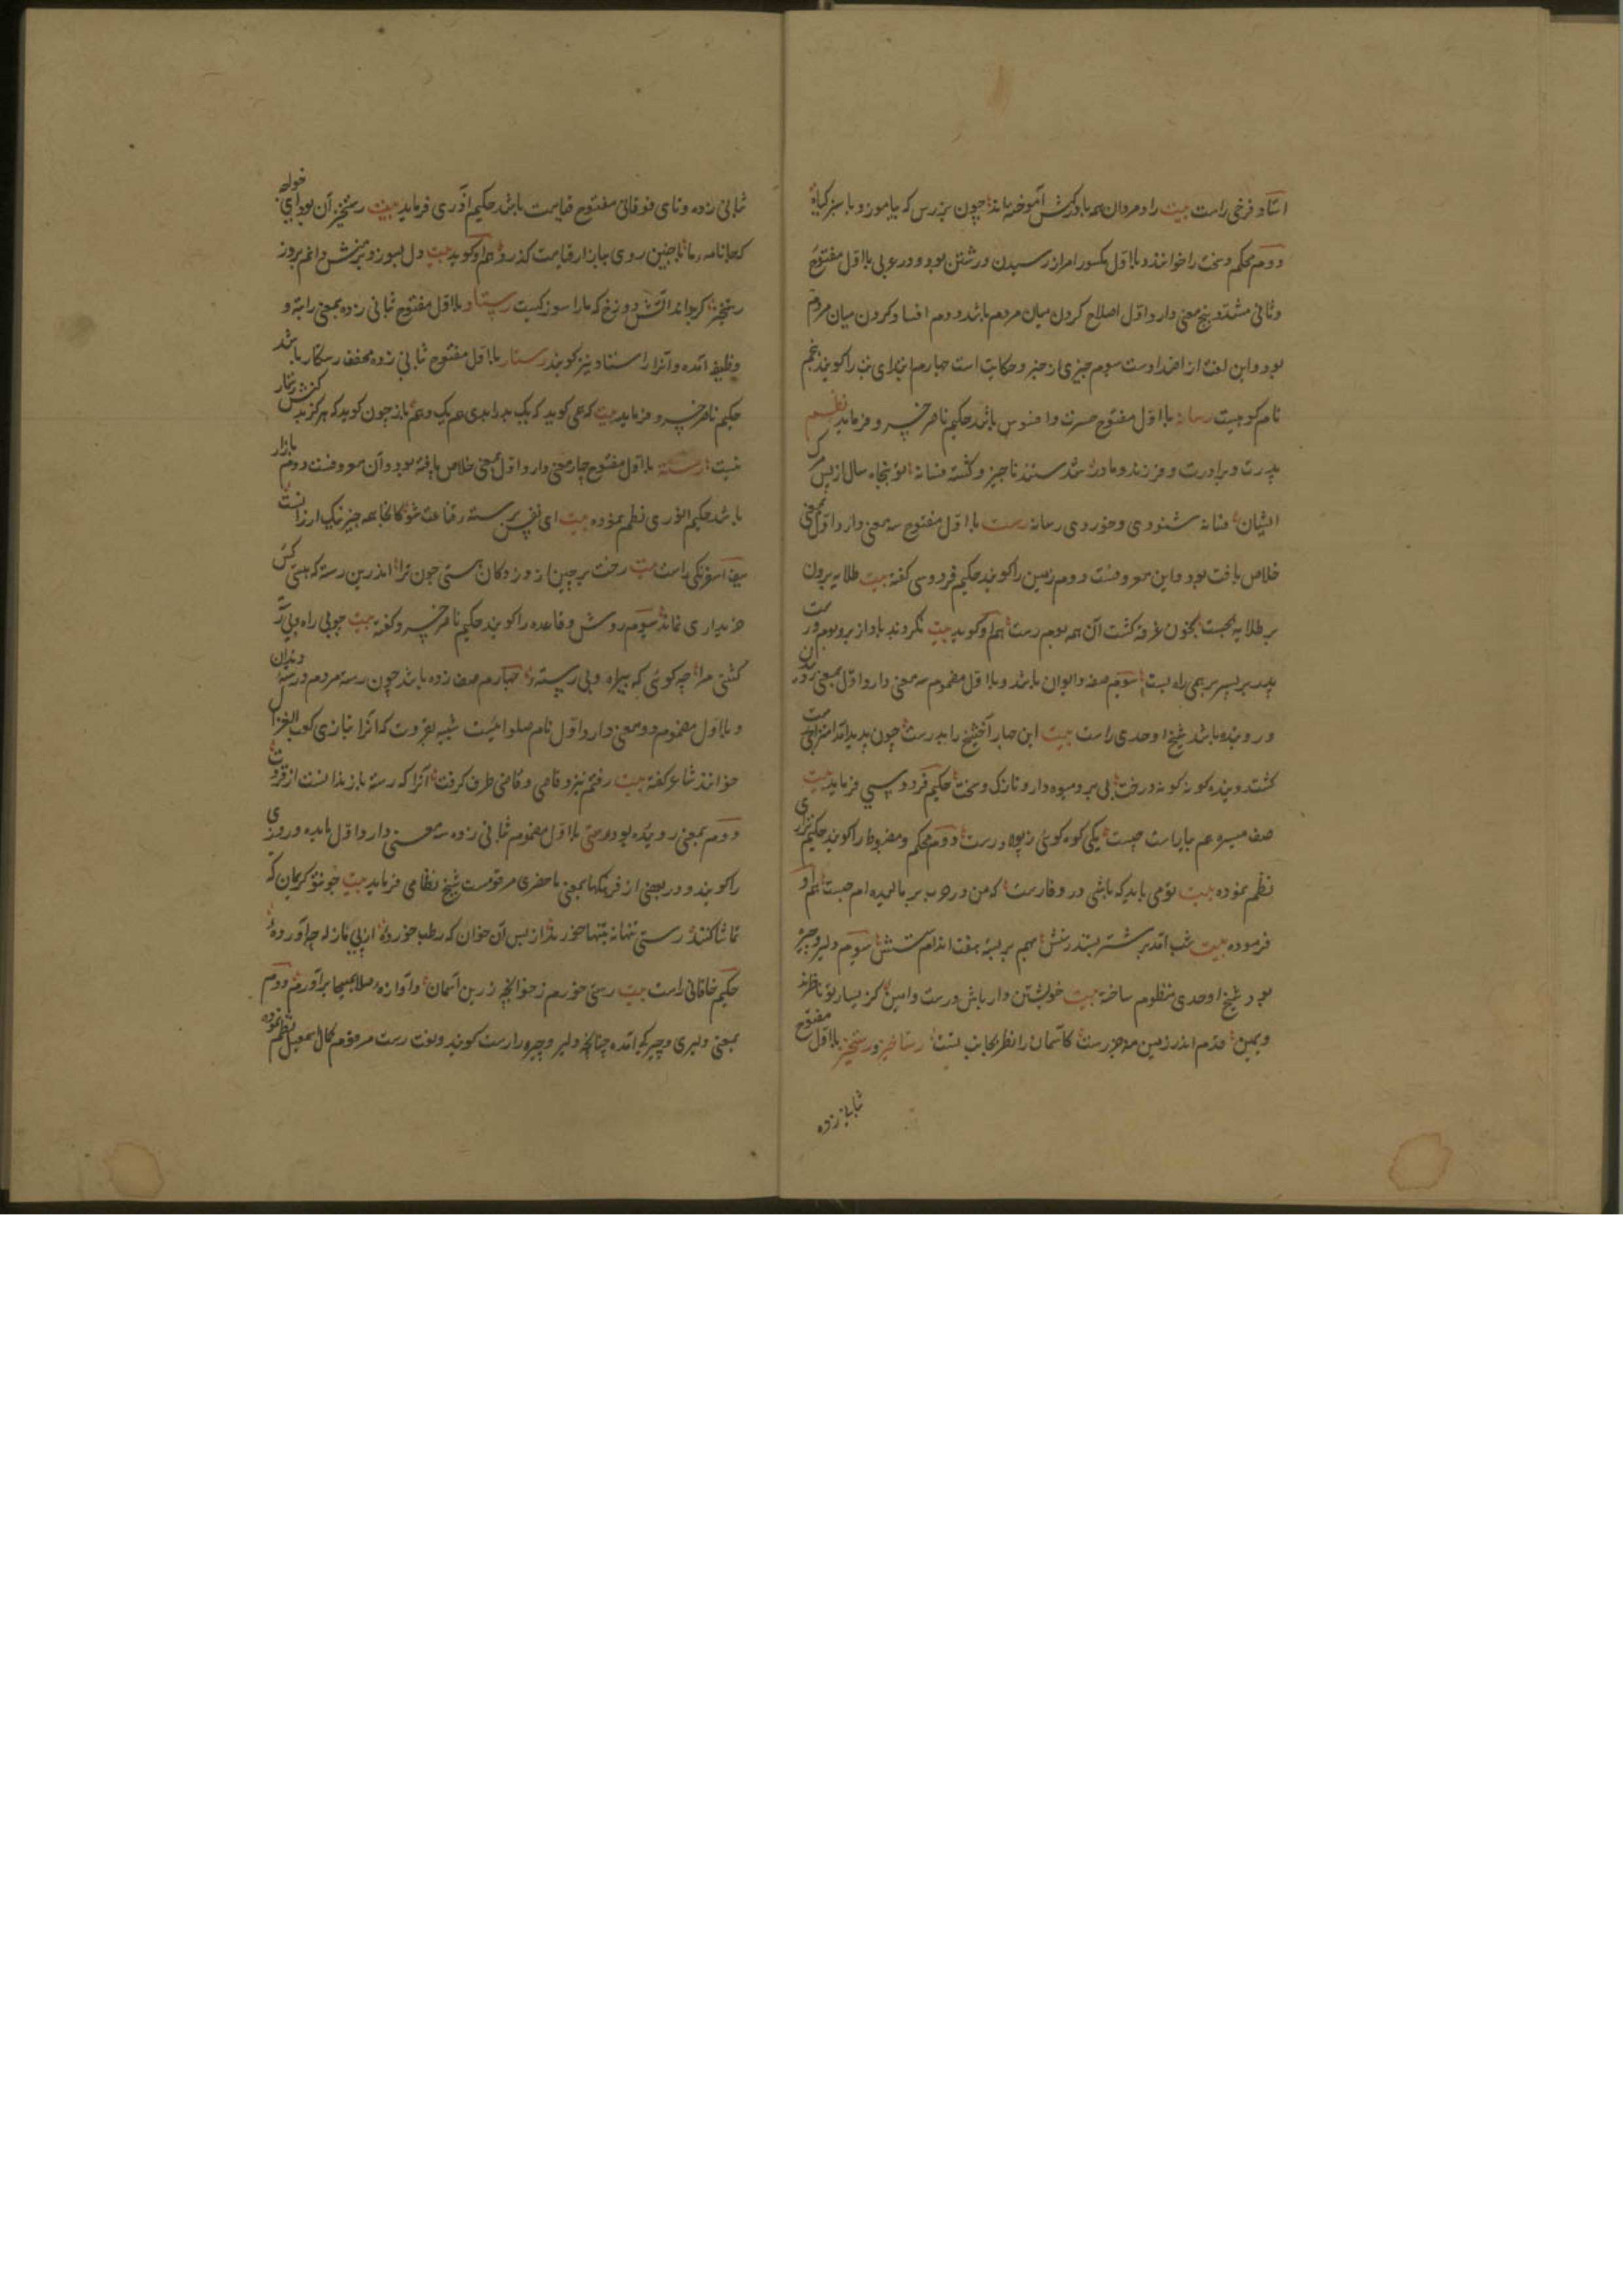 استاد فرخی راست بیت راد مردان همه با دو کفش آموخته اند چون بزرس که بیاموزد با سبز گیاه
دوم محکم و سخت را خوانند و با اول مکسور امر از رسیدن و رشتن بود و در عربی با اول مفتوح
و ثانی مشدد پنج معنی دارد اول اصلاح کردن میان مردم باشد دوم افساد کردن میان مردم
بود و این لغت از اضداد است سوم چیزی از خبر و حکایت است چهارم ابتدای تب را گویند پنجم
نام کوهیست رسانه با اول مفتوح حسرت و افسوس باشد حکیم ناصر خسرو فرماید نظم
پدرت و برادرت و فرزند و مادر شدستند ناچیز و گشته فسانه تو پنجاه سال از پس مرگ
ایشان فسانه شنودی و خوردی رسانه رست با اول مفتوح سه معنی دارد اول بمعنی
خلاص یافت بود و این معروفست دوم زمین را گویند حکیم فردوسی گفته بیت طلایه برون
بر طلایه نخست بخون غرقه گشت آن همه بوم رست هم او گوید بیت نکردند باد از بر و بوم رست
پدر بر پسر بر همی راه بست سوم صفه و ایوان باشد و با اول مضموم سه معنی دارد اول بمعنی
و روینده باشد شیخ اوحدی راست بیت این چهار آخشیج را بدرست چون پدید آمد امتزاج نخست
گشت روینده گونه گونه درخت بی بر و میوه دار و نازک و سخت حکیم فردوسی فرماید بیت
صف میسره هم بیاراست چست یکی کوه گوئی ز پولاد رست دوم محکم و مضبوط را گویند حکیم نزاری
نظم نموده بیت تو می باید که باشی در وفا رست که من در حرب بر بالیده ام چست هم او
فرموده بیت شب آمد بر شتر بستند رستش بهم بر بسته هفت اندام سستش سوم دلیر و چیر
بود شیخ اوحدی منظوم ساخته بیت خویشتن دار باش و رست و امین کز یسار تو ناظرند
و یمین قدم اندر زمین منه جز رست کاسمان را نظر بجانب تست رستاخیز و رستخیز با اول مفتوح
ثانی زده
ثانی زده و تای فوقانی مفتوح قیامت باشد حکیم آذری فرماید بیت رستخیز آن بود ای خواجه
که با نامه ما با چنین روی ببازار قیامت گذرد هم او گوید بیت دل بسوز و نترش دانم بروز
رستخیز گر بداند آتش دوزخ که ما را سوز کیست رستاد با اول مفتوح بثانی زده بمعنی راتبه و
وظیفه آمده و آنرا راستاد نیز گویند رستار با اول مفتوح ثانی زده مخفف رستگار باشد
حکیم ناصر خسرو فرماید بیت که می گوید که یک بد را بدی هم یک دهم باز چون گوید که هرگز بد کنش رستار
نیست رسته با اول مفتوح چهار معنی دارد اول بمعنی خلاص یافته بود و آن معروفست دوم بازار
باشد حکیم انوری نظم نموده بیت ای نفس برسته قناعت شو کانجا همه چیز نیک ارزانست
سیف اسفرنگی راست بیت رخت برچین از دکان هستی چون ترا اندرین رسته که هستی کس
خریداری نماند سوم روش و قاعده را گویند حکیم ناصر خسرو گفته بیت چو بی راه و بی رسته
گشتی مرا چه گوئی که بیراه و بی رسته چهارم صف زده باشد چون رسته مردم و رسته دندان
و با اول مضموم دو معنی دارد اول نام حلوائیست شبیه بقروت که آنرا بتازی کعب الغزال
خوانند شاعر گفته بیت رفتم بنزد قاضی و قاضی طرف گرفت آنرا که رسته باز ندانست از قروت
دوم بمعنی روئیده بود رستی با اول مضموم ثانی زده سه معنی دارد اول مایده و روزی
را گویند و در بعضی از فرهنگها بمعنی ماحضری مرقومست شیخ نظامی فرماید بیت چو نتو کریمان که
تماشا کنند رستی تنها نه بتنها خورند از پس آن خوان که رطب خورده از پی ما زله چه آورده
حکیم خاقانی راست بیت رستی خورم ز خوانچه زرین آسمان وآوازه صلا بمسیحا برآورم دوم
بمعنی دلیری و چیرگی آمده چنانچه دلیر و چیره را رست گویند و لغت رست مرقوم کمال اسمعیل نظم نموده